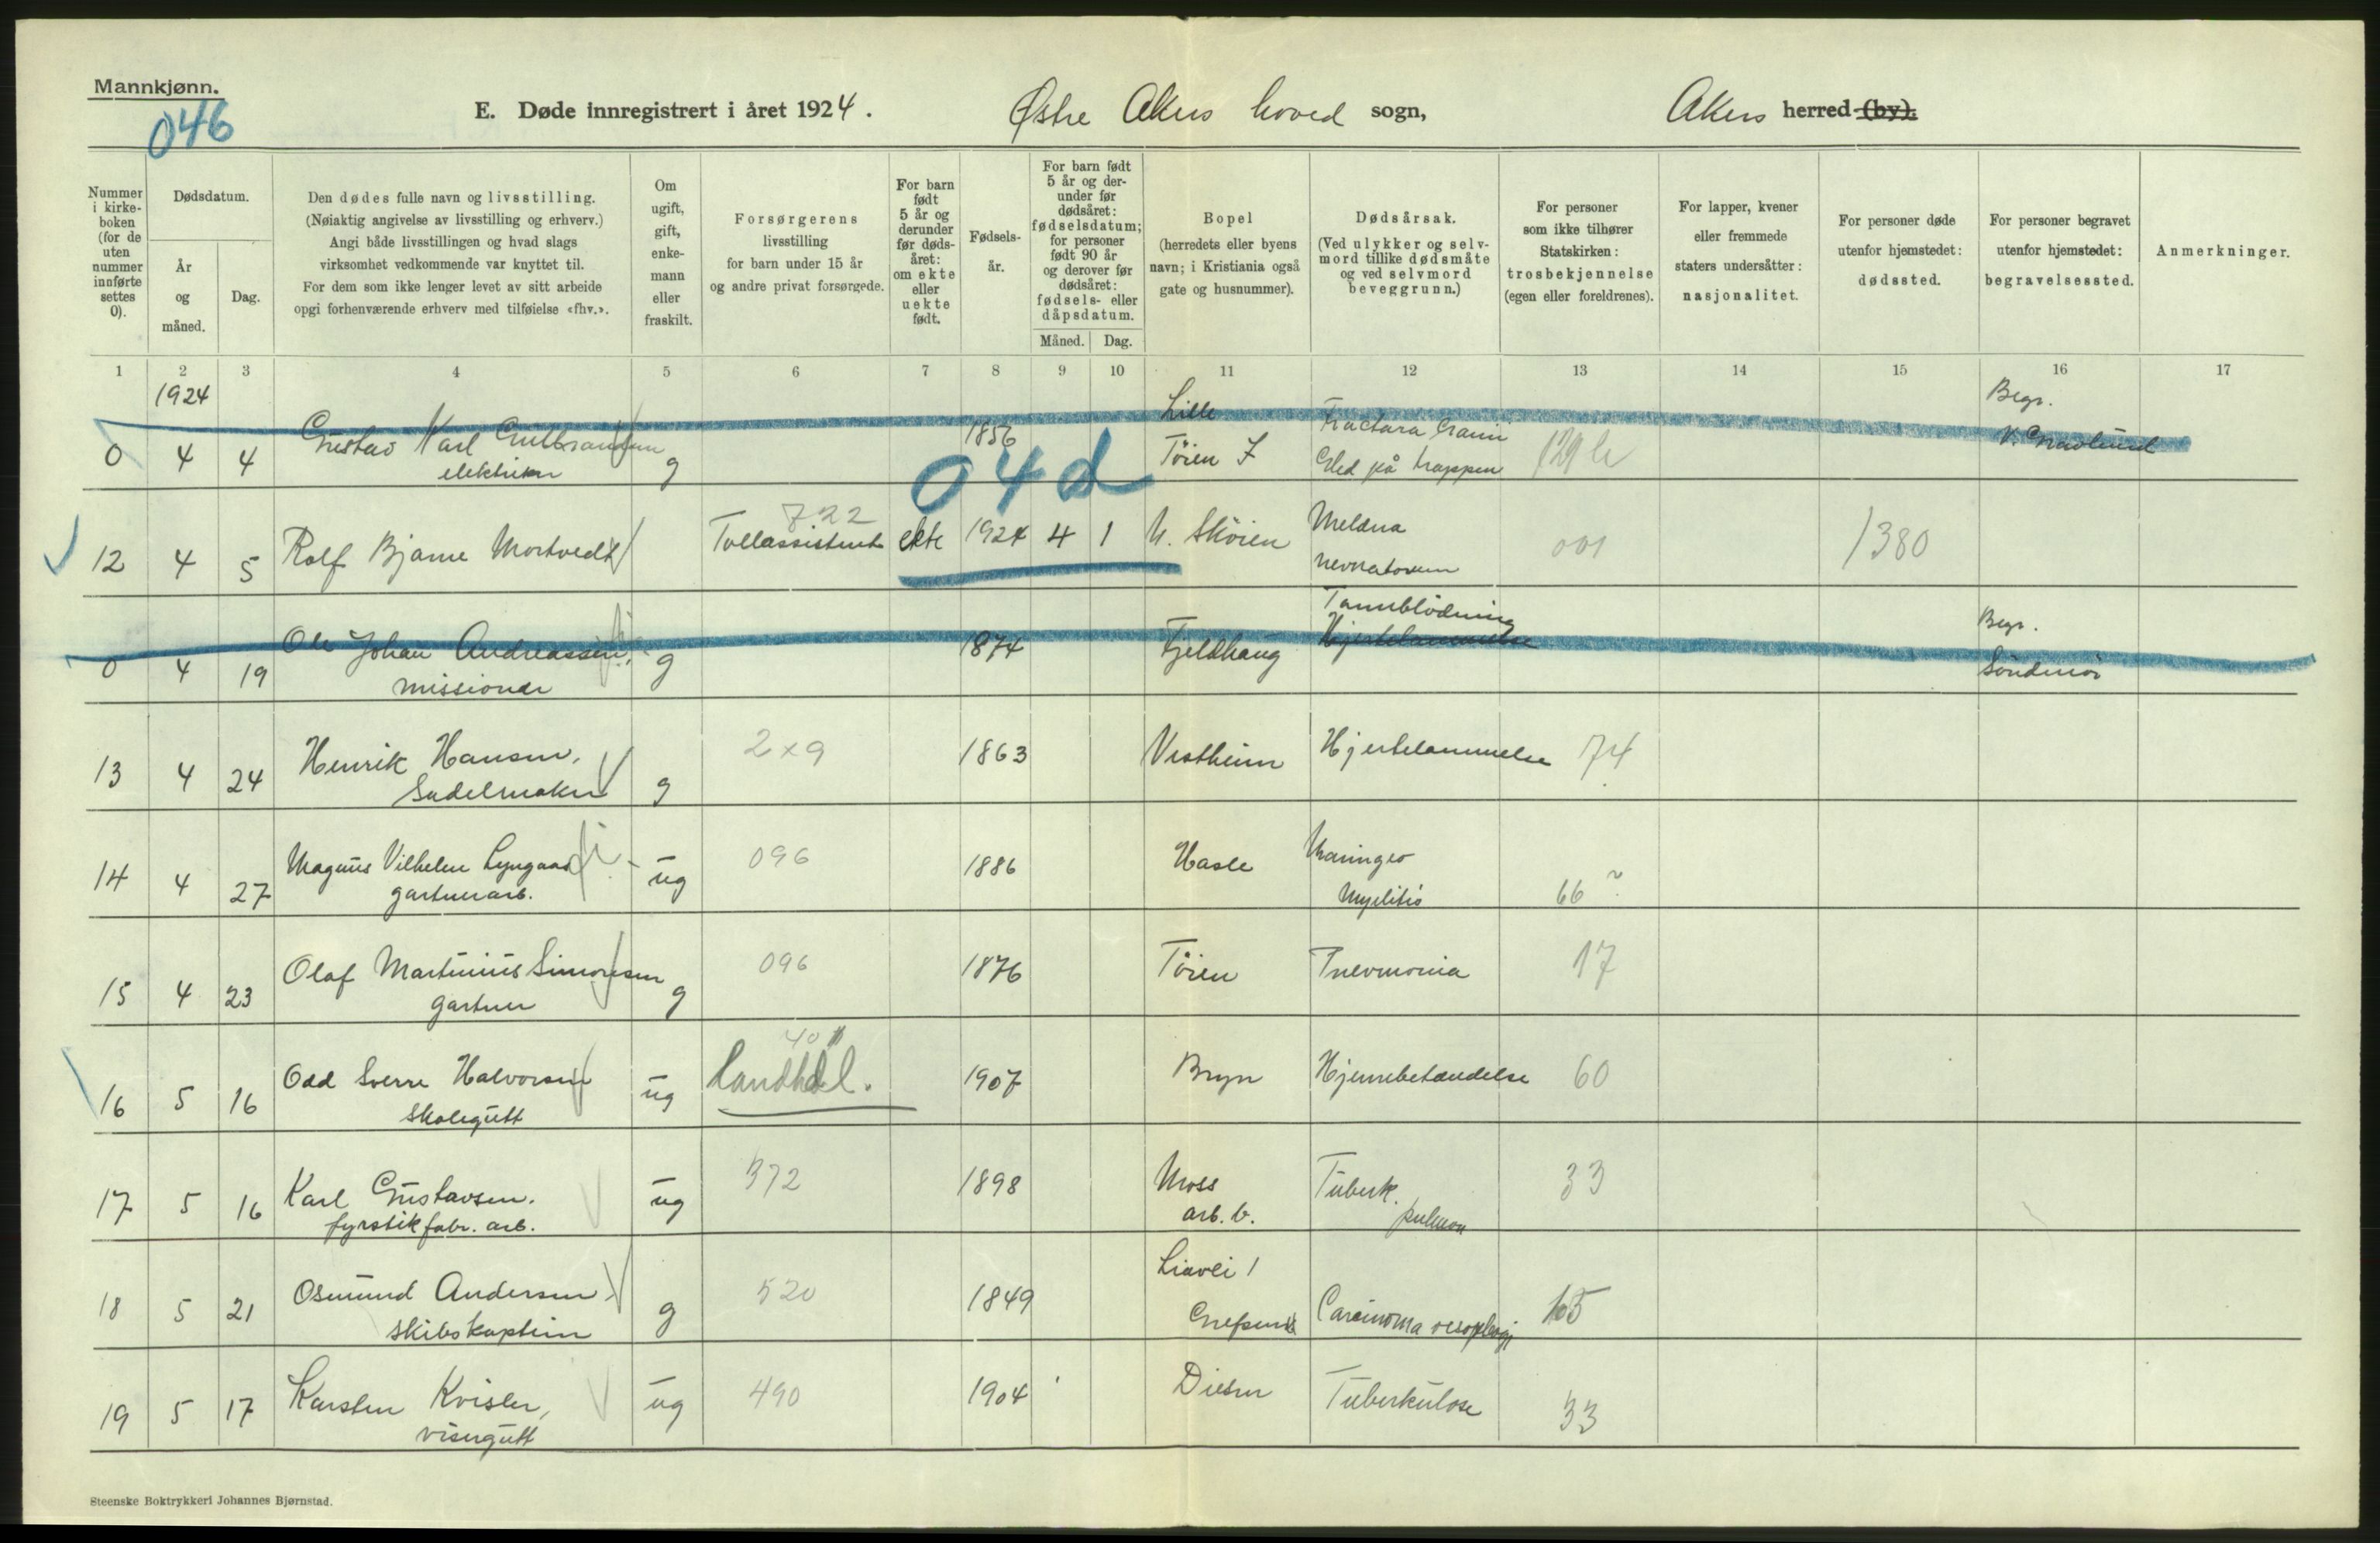 Mannkjønn.
046
E. Døde innregistrert i året 1924. Østre Akers hoved sogn, Akers herred (by).
Nummer i kirke-boken (for de uten nummer innførte settes 0).
Dødsdatum.
År og måned.
Dag.
Den dødes fulle navn og livsstilling.
(Nøiaktig angivelse av livsstilling og erhverv.)
Angi både livsstillingen og hvad slags
virksomhet vedkommende var knyttet til.
For dem som ikke lenger levet av sitt arbeide
opgi forhenværende erhverv med tilføielse «fhv.».
Om ugift, gift, enke-mann eller fraskilt.
Forsørgerens
livsstilling
for barn under 15 år
og andre privat forsørgede.
For barn født 5 år og derunder før døds-året: om ekte eller uekte født.
Fødsels-år.
For barn født 5 år og der-under før dødsåret: fødselsdatum; for personer født 90 år og derover før dødsåret: fødsels- eller dåpsdatum.
Måned. Dag.
Bopel
(herredets eller byens
navn; i Kristiania også
gate og husnummer).
Dødsårsak.
(Ved ulykker og selv-
mord tillike dødsmåte
og ved selvmord
beveggrunn.)
For personer
som ikke tilhører
Statskirken:
trosbekjennelse
(egen eller foreldrenes).
For lapper, kvener
eller fremmede
staters undersåtter:
nasjonalitet.
For personer døde
utenfor hjemstedet:
dødssted.
For personer begravet
utenfor hjemstedet:
begravelsessted.
Anmerkninger.
1 2 3 4 5 6 7 8 9 10 11 12 13 14 15 16 17
1924
Lille Fractura Cranii Begr.
0 4 4 Gustav Karl Gulbrandsen g 1856 Töien 7 Gled på trappen 129 b V. Gravlund
elektriker
04d
722
12 4 5 Rolf Bjarne Mortvedt Tollassistent ekte 1924 4 1 N. Sköien Melæna 001 1380
neonatorum
Tannblödning Begr.
0 4 19 Ole Johan Andreassen, g 1874 Fjeldhaug Hjertelammelse Söndmör
missionær
13 4 24 Henrik Hansen, g 2x9 1863 Vestheim Hjertelammelse 74
Sadelmaker
14 4 27 Magnus Vilhelm Lyngaas ug 096 1886 Hasle Meningeo
gartnerarb. Myelitis 66 ?
15 4 23 Olaf Martinius Simonsen g 096 1876 Töien Pnevmonia 17
gartner
40
16 5 16 Odd Sverre Halvorsen ug Landhdl. 1907 Bryn Hjernebetændelse 60
Skolegutt
17 5 16 Karl Gustavsen. ug 372 1898 Moss Tuberk. 33
fyrstikfabr. arb. arb. b. pulmon
Liavei 1
18 5 21 Osmund Andersen g 520 1849 Grefsen Carcinoma oesophagi 105
Skibskaptein
19 5 17 Karsten Kvisler, ug 490 1904 Diesen Tuberkulose 33
visergutt
Steenske Boktrykkeri Johannes Bjørnstad.